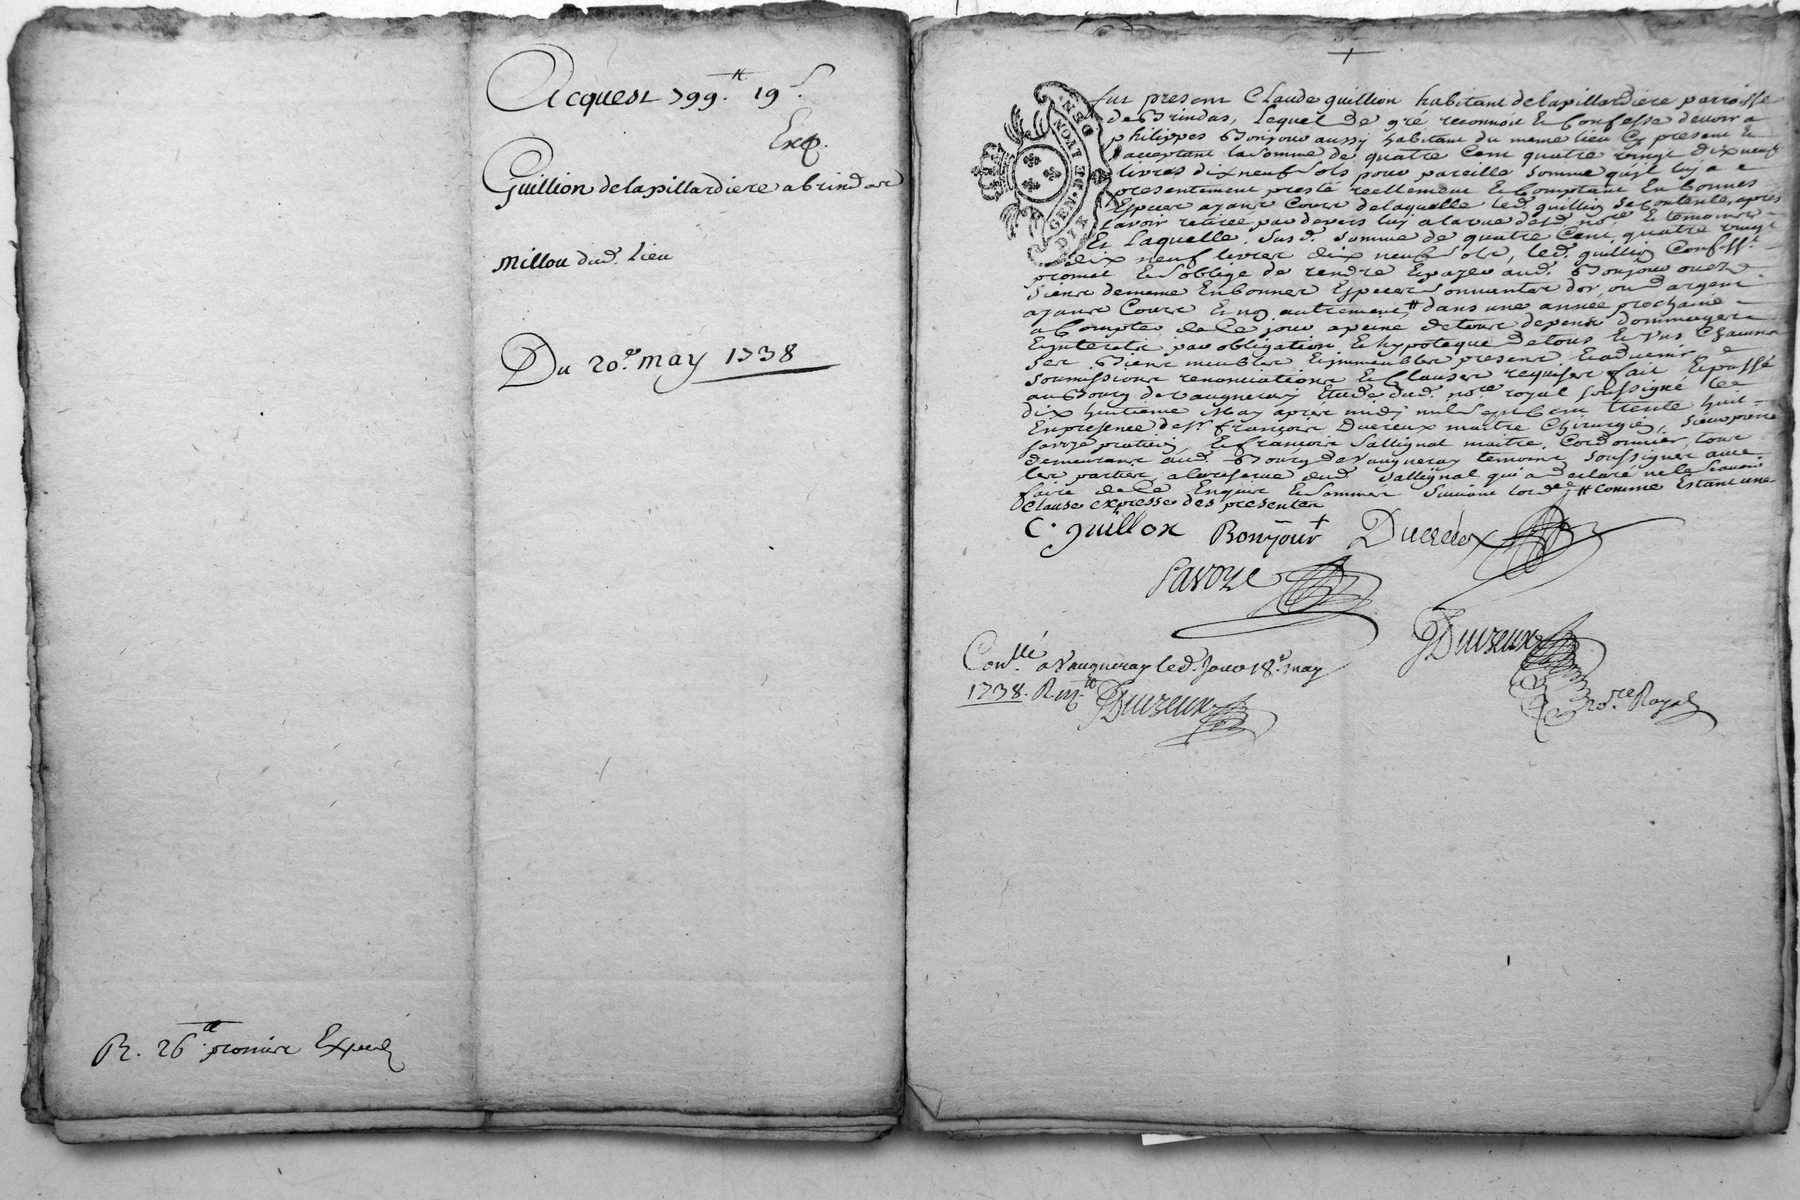 Acquest 799.tt 19 s
Exp.
Guillion de la pillardiere a brindas
Millou dud. Lieu
Du 20.e may 1738
R. 26.tt premiere Exped
GEN. DE LYON
DIX DEN.
fut present Claude guillion habitant de la pillardiere parroisse
de Brindas, Lequel de gré reconnoit et Confesse devoir a
philippes Bonjour aussy habitant du meme lieu Cy present et
acceptant la Somme de quatre Cent quatre vingt dix neuf
livres dix neuf sols pour pareille Somme qu'il luy a
presentement presté reellement et Comptant En bonnes
Especes ayant Cours de laquelle led. guillion Se Contente, apres
Lavoir retirée par devers luy a la vue dud. no.re et temoins
Et Laquelle. Susd. Somme de quatre Cent quatre vingt
dix neuf livres dix neuf sols, led. guillion Confess.t
promet et S'oblige de rendre et payer aud. Bonjour ou ez
Siens de meme En bonnes Especes Sonnantes d'or, ou d'argent
ayant Cours Et non autrement # dans une année prochaine
a Compter de Ce jour a peine de tous depens dommages
Et interets par obligation Et hypoteque de tous Et Uns Chacuns
Ses Biens meubles Et immeubles presents Et advenir
Soumissions renonciations Et Clauses requises fait Et passé
au Bourg de Vaugneray Etude dud. no.re royal soussigné le
dix huitieme May apres midy mil Sept Cent trente huit
En presence de S.r françois Ducreux maitre Chirurgien, Sieur pierre
Savoye praticien Et françois Sallignat maitre Cordonnier, tous
demeurant aud. Bourg de Vaugneray temoins Soussignes avec
les parties a la reserve dud. Sallignat qui a declaré ne le Scavoir
faire de Ce Enquis Et Sommés Suivant lord.ce # Comme Estant une
Clause expresse des presentes
C. guillon Bonjour + Ducreux
Savoye
Ducreux
no.re Royal
Con.llé a Vaugneray led. Jour 18.e may
1738. R. Ducreux